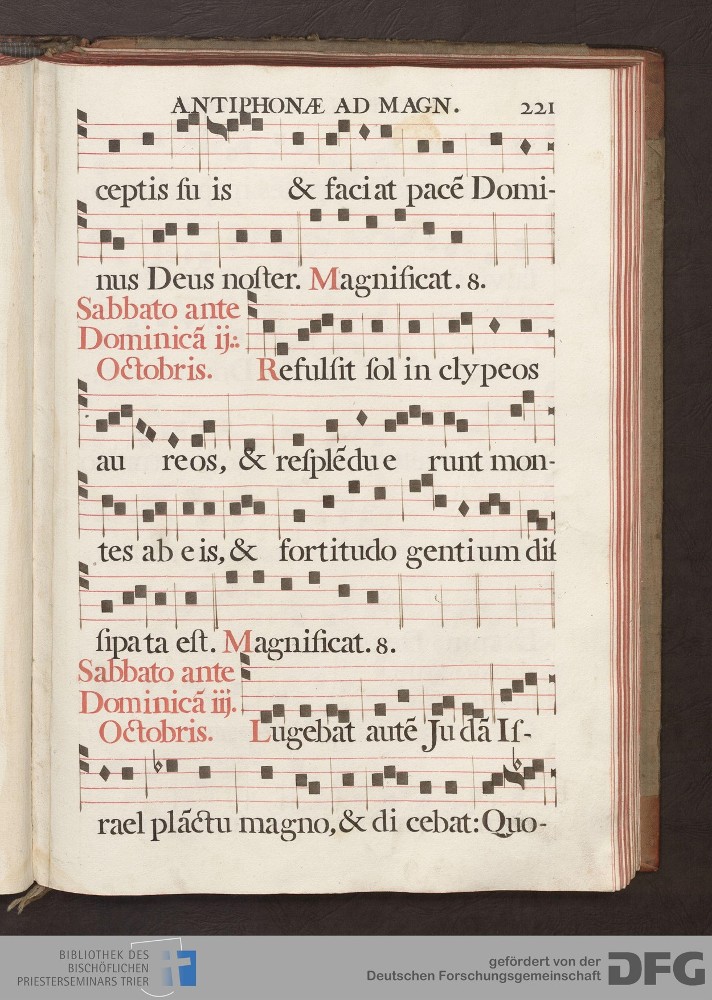 ANTIPHONÆ AD MAGN. 221
ceptis ſu is & faciat pacē Domi-
nus Deus noſter. Magnificat. 8.
Sabbato ante
Dominicā ij.
Octobris. Refulſit ſol in clypeos
au reos, & reſplēdu e runt mon-
tes ab e is, & fortitudo gentium diſ
ſipa ta eſt. Magnificat. 8.
Sabbato ante
Dominicā iij.
Octobris. Lugebat autē Ju dā Iſ-
rael plāctu magno, & di cebat: Quo-
BIBLIOTHEK DES
BISCHÖFLICHEN
PRIESTERSEMINARS TRIER
gefördert von der
Deutschen Forschungsgemeinschaft DFG